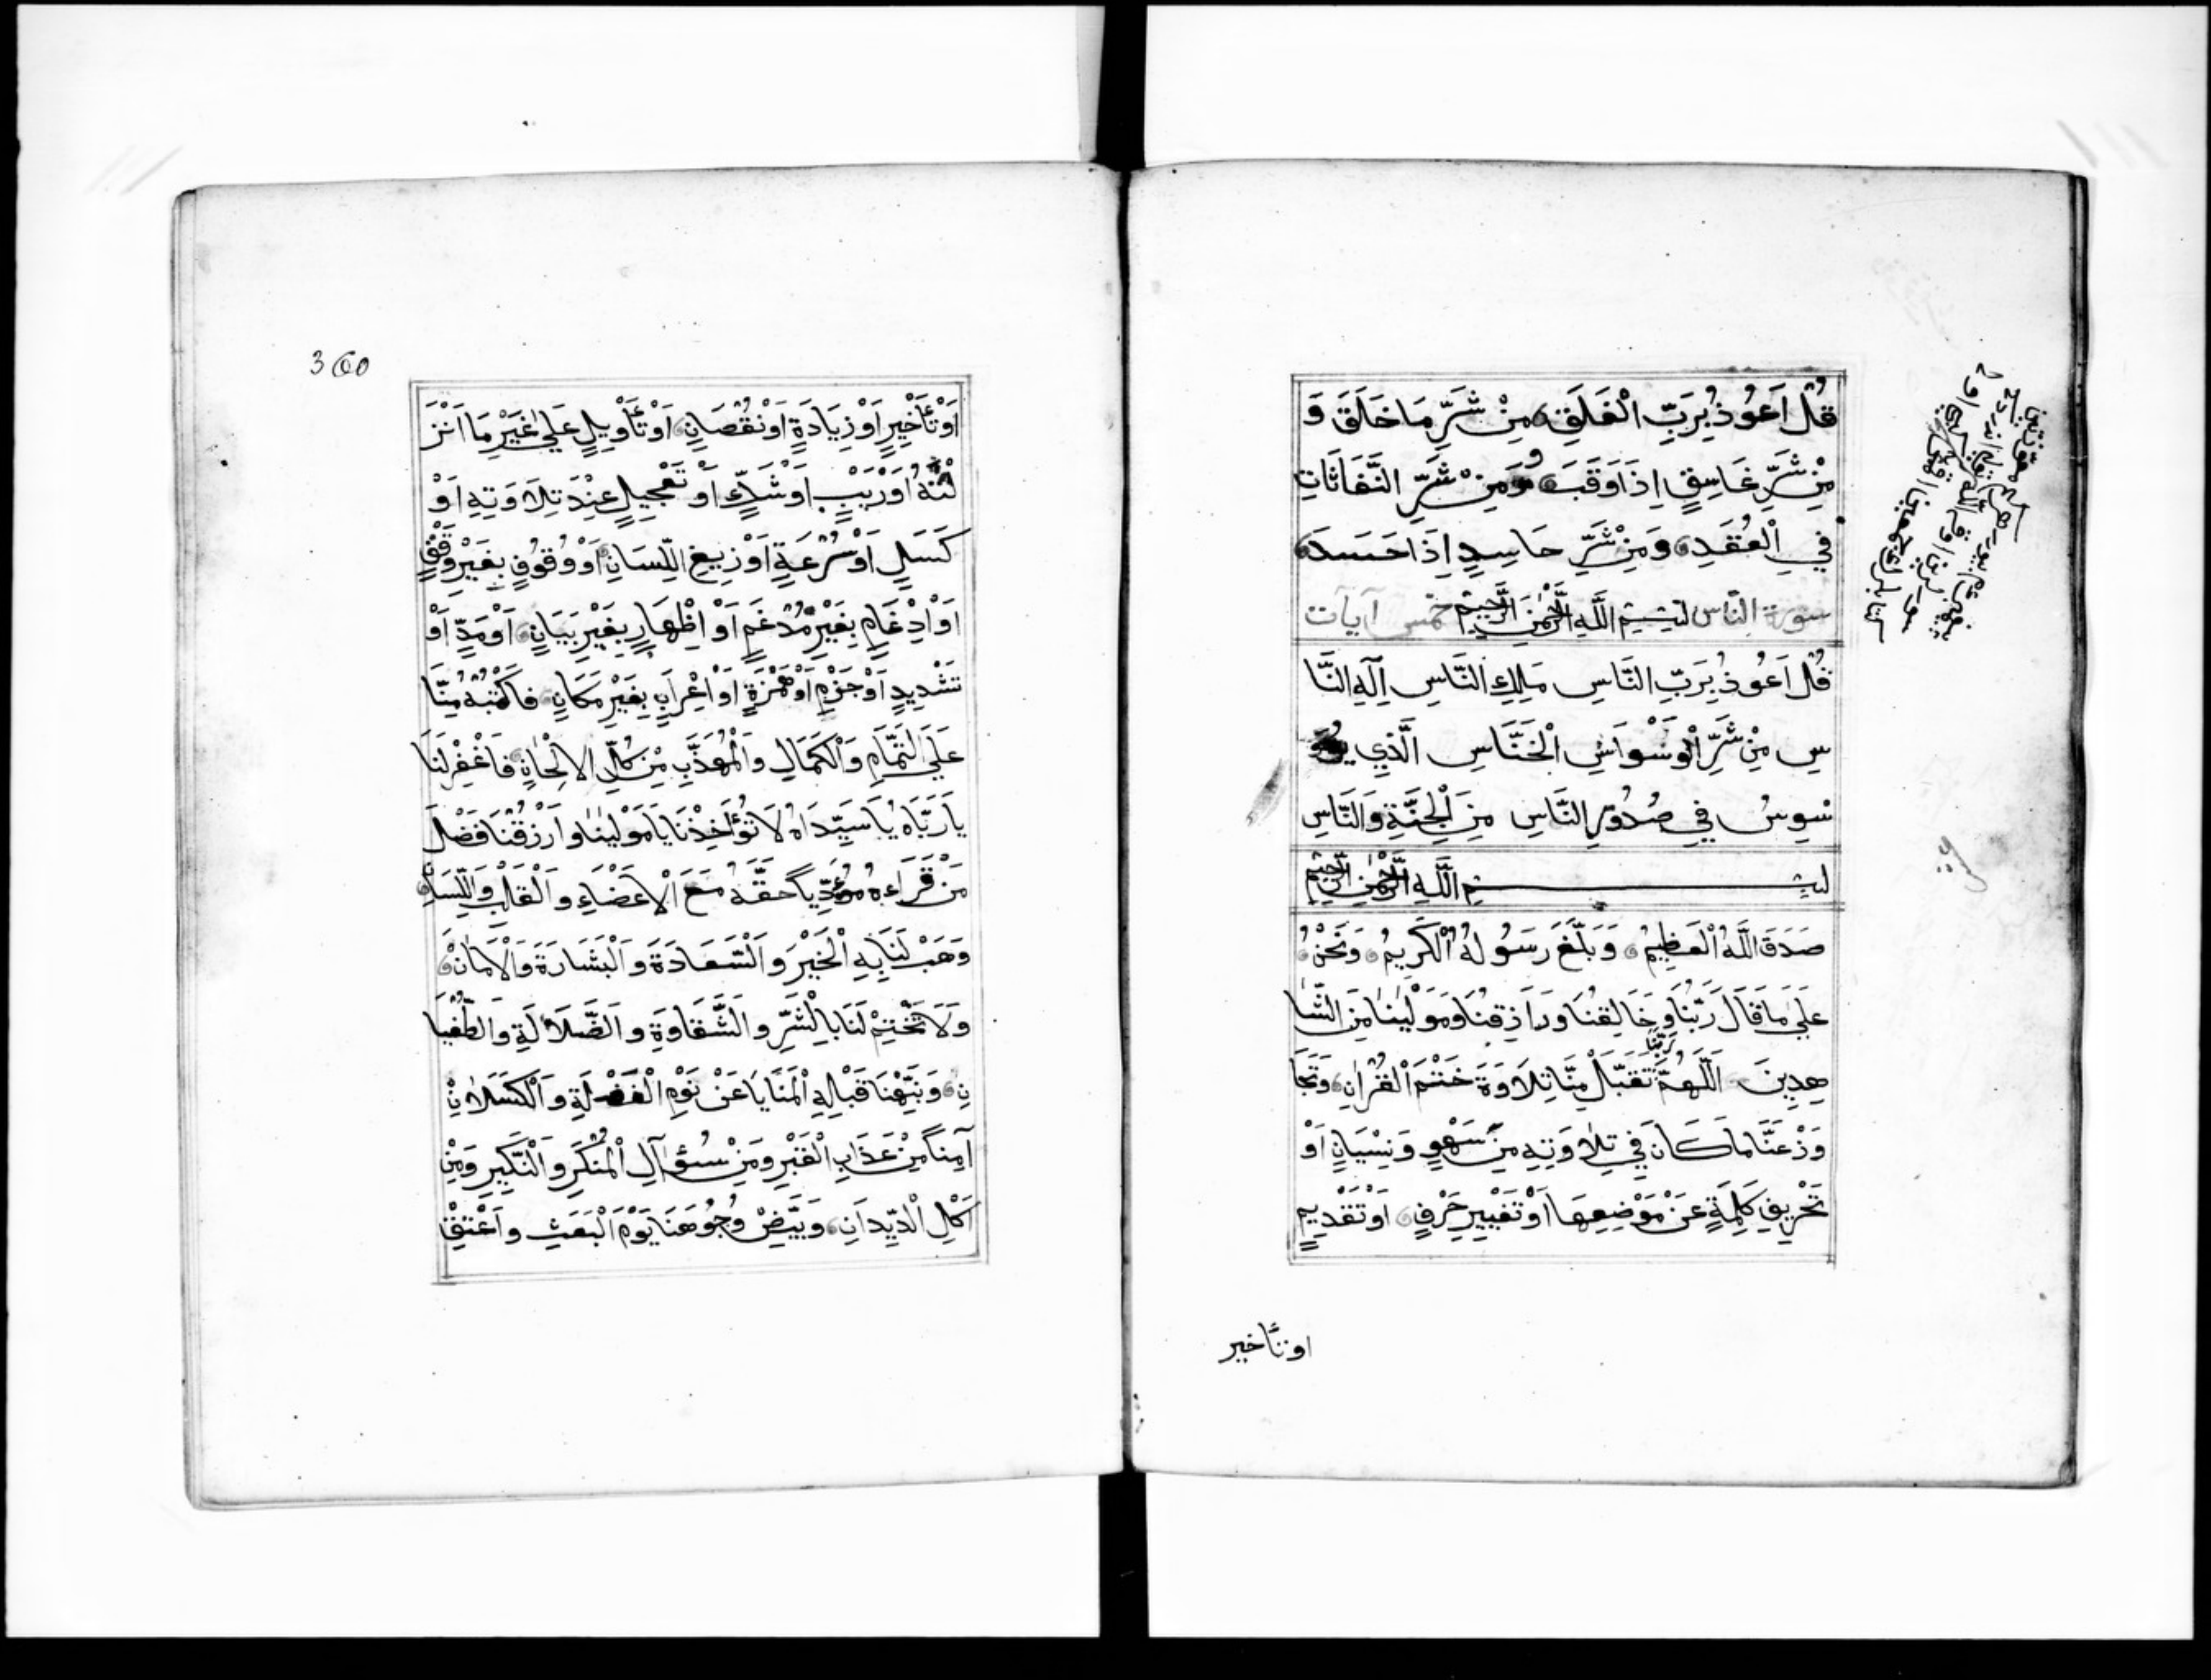 قُلْ اَعُوذُ بِرَبِّ الْفَلَقِ مِنْ شَرِّ مَا خَلَقَ وَ
مِنْ شَرِّ غَاسِقٍ اِذَا وَقَبَ وَمِنْ شَرِّ النَّفَّاثَاتِ
فِي الْعُقَدِ وَمِنْ شَرِّ حَاسِدٍ اِذَا حَسَدَ
سورة النّاس بِسْمِ اللَّهِ الرَّحْمٰنِ الرَّحِيْمِ خمس آيات
قُلْ اَعُوذُ بِرَبِّ النَّاسِ مَلِكِ النَّاسِ اِلٰهِ النَّا
سِ مِنْ شَرِّ الْوَسْوَاسِ الْخَنَّاسِ الَّذِي يُوَ
سْوِسُ فِي صُدُورِ النَّاسِ مِنَ الْجِنَّةِ وَالنَّاسِ
بِسْمِ اللَّهِ الرَّحْمٰنِ الرَّحِيْمِ
صَدَقَ اللَّهُ الْعَظِيْمُ وَبَلَّغَ رَسُولُهُ الْكَرِيْمُ وَنَحْنُ
عَلَى مَا قَالَ رَبُّنَا وَخَالِقُنَا وَرَازِقُنَا وَمَوْلٰينَا مِنَ الشَّا
هِدِيْنَ اَللَّهُمَّ رَبَّنَا تَقَبَّلْ مِنَّا تِلَاوَةَ خَتْمِ الْقُرْاٰنِ وَتَجَا
وَزْ عَنَّا مَا كَانَ فِي تِلَاوَتِهِ مِنْ سَهْوٍ وَنِسْيَانٍ اَوْ
تَحْرِيْفِ كَلِمَةٍ عَنْ مَوْضِعِهَا اَوْ تَغْيِيْرِ حَرْفٍ اَوْ تَقْدِيْمٍ
او تأخير
360
اَوْ تَأْخِيْرٍ اَوْ زِيَادَةٍ اَوْ نُقْصَانٍ اَوْ تَأْوِيْلٍ عَلَى غَيْرِ مَا اَنْزَ
لْتَهُ اَوْ رَيْبٍ اَوْ شَكٍّ اَوْ تَعْجِيْلٍ عِنْدَ تِلَاوَتِهِ اَوْ
كَسَلٍ اَوْ سُرْعَةٍ اَوْ زَيْغِ اللِّسَانِ اَوْ وُقُوفٍ بِغَيْرِ وَقْفٍ
اَوْ اِدْغَامٍ بِغَيْرِ مُدْغَمٍ اَوْ اِظْهَارٍ بِغَيْرِ بَيَانٍ اَوْ مَدٍّ اَوْ
تَشْدِيْدٍ اَوْ جَزْمٍ اَوْ هَمْزَةٍ اَوْ اِعْرَابٍ بِغَيْرِ مَكَانٍ فَاكْتُبْهُ مِنَّا
عَلَى التَّمَامِ وَالْكَمَالِ وَالْمُهَذَّبِ مِنْ كُلِّ الْاِلْحَانِ فَاغْفِرْ لَنَا
يَا رَبَّاهُ يَا سَيِّدَاهُ لَا تُؤَاخِذْنَا يَا مَوْلٰينَا وَارْزُقْنَا فَضْلَ
مَنْ قَرَاَهُ مُؤَدِّيًا حَقَّهُ مَعَ الْاَعْضَاءِ وَالْقَلْبِ وَاللِّسَانِ
وَهَبْ لَنَا بِهِ الْخَيْرَ وَالسَّعَادَةَ وَالْبَشَارَةَ وَالْاَمَانَ
وَلَا تَخْتِمْ لَنَا بِالشَّرِّ وَالشَّقَاوَةِ وَالضَّلَالَةِ وَالطُّغْيَا
نِ وَنَبِّهْنَا قَبْلَ الْمَنَايَا عَنْ نَوْمِ الْغَفْلَةِ وَالْكَسْلَانِ
آمِنًا مِنْ عَذَابِ الْقَبْرِ وَمِنْ سُؤَالِ الْمُنْكَرِ وَالنَّكِيْرِ وَمِنْ
اَكْلِ الدِّيْدَانِ وَبَيِّضْ وُجُوهَنَا يَوْمَ الْبَعْثِ وَاَعْتِقْ